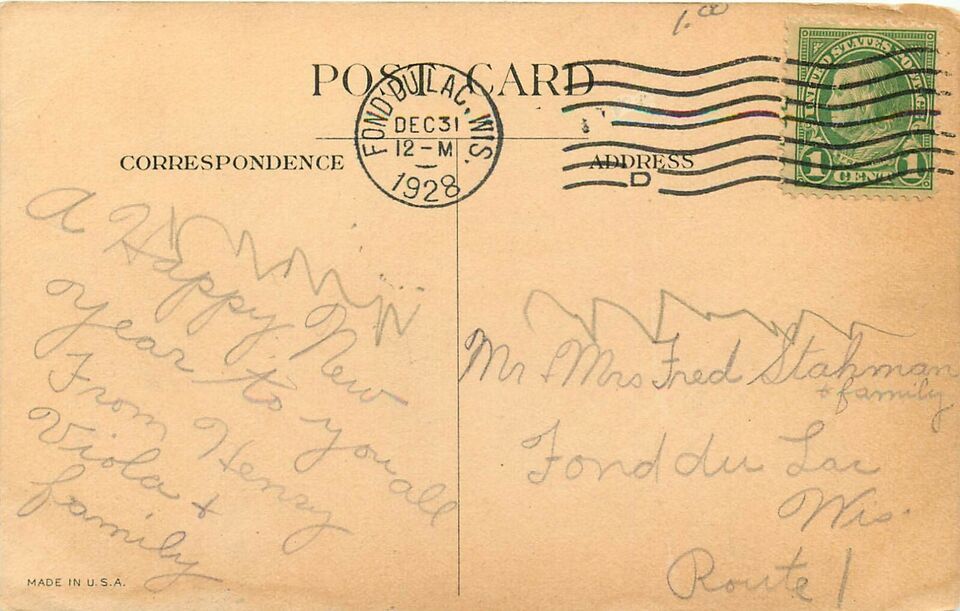 1.00
POST CARD
UNITED STATES POSTAGE
1 CENT 1
FOND DU LAC, WIS.
DEC 31
12-M
1928
D
CORRESPONDENCE
ADDRESS
A Happy New
year to you all
From Henry
Viola +
family
Mr. Mrs Fred Stahman
+ family
Fond du Lac
Wis.
Route 1
MADE IN U.S.A.